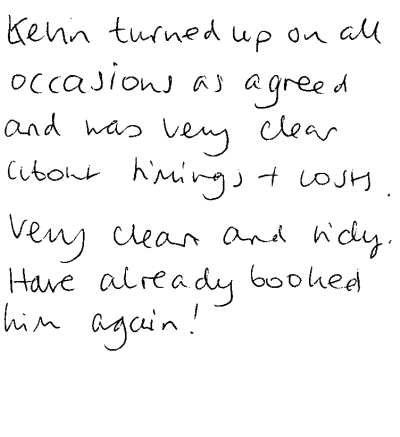 Kevin turned up on all
occasions as agreed
and was very clear
about timings + costs.
Very clean and tidy.
Have already booked
him again!